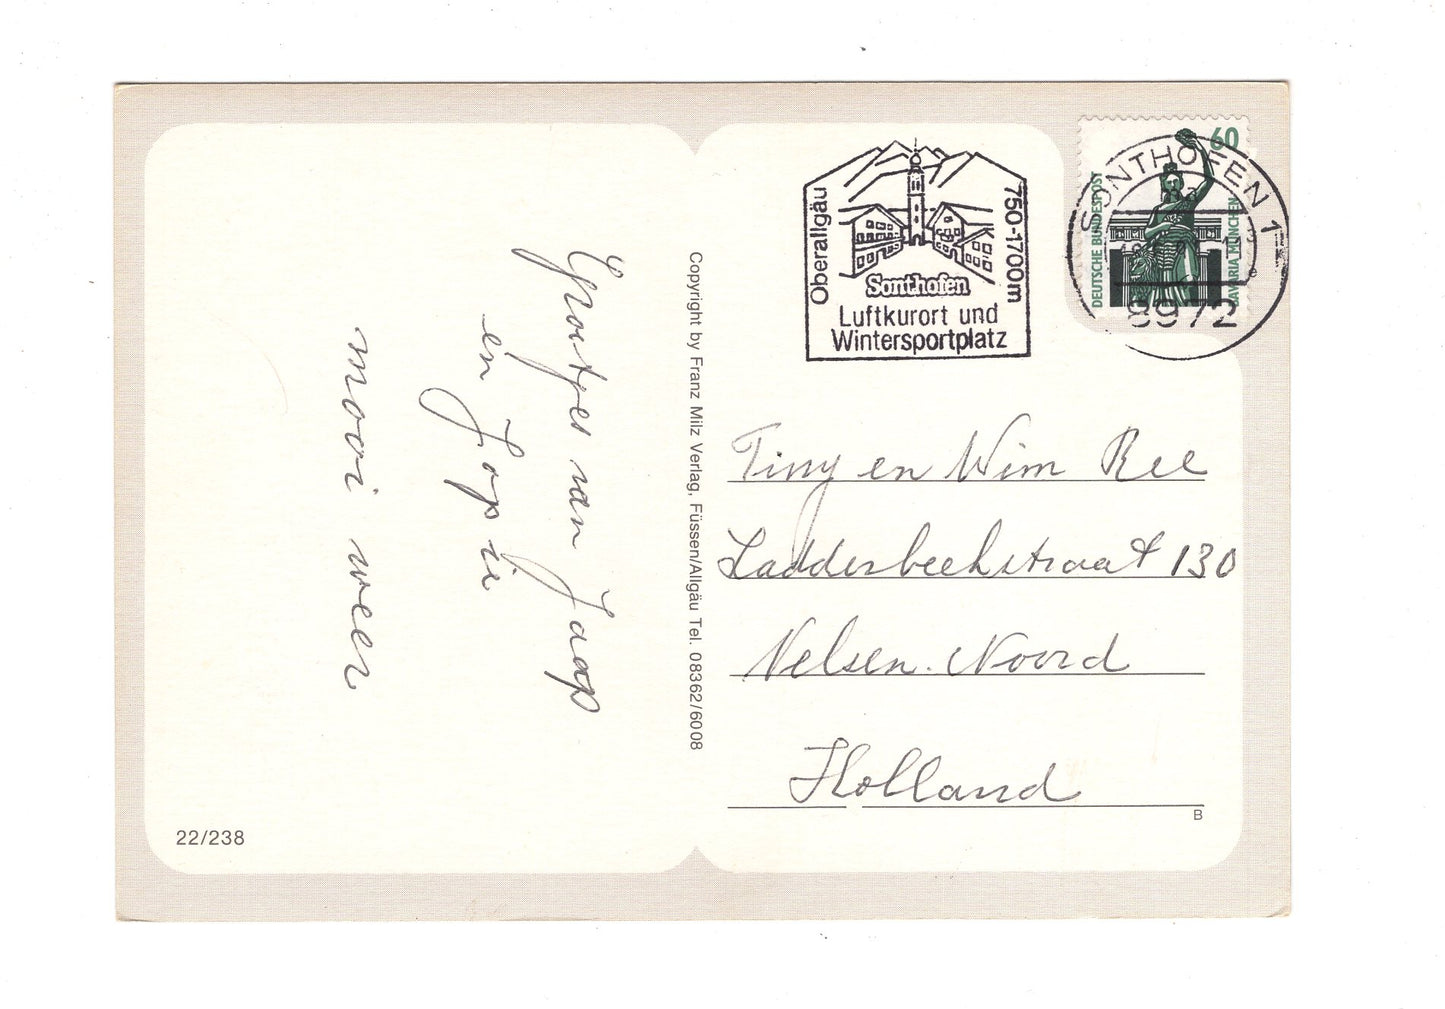 Groetjes van Jaap
en Jopie
mooi weer
22/238
Copyright by Franz Milz Verlag, Füssen/Allgäu Tel. 08362/6008
Oberallgäu
750-1700m
Sonthofen
Luftkurort und
Wintersportplatz
60
DEUTSCHE BUNDESPOST
BAVARIA MÜNCHEN
SONTHOFEN 1
8972
Tiny en Wim Ree
Ladderbeekstraat 130
Velsen. Noord
Holland
B